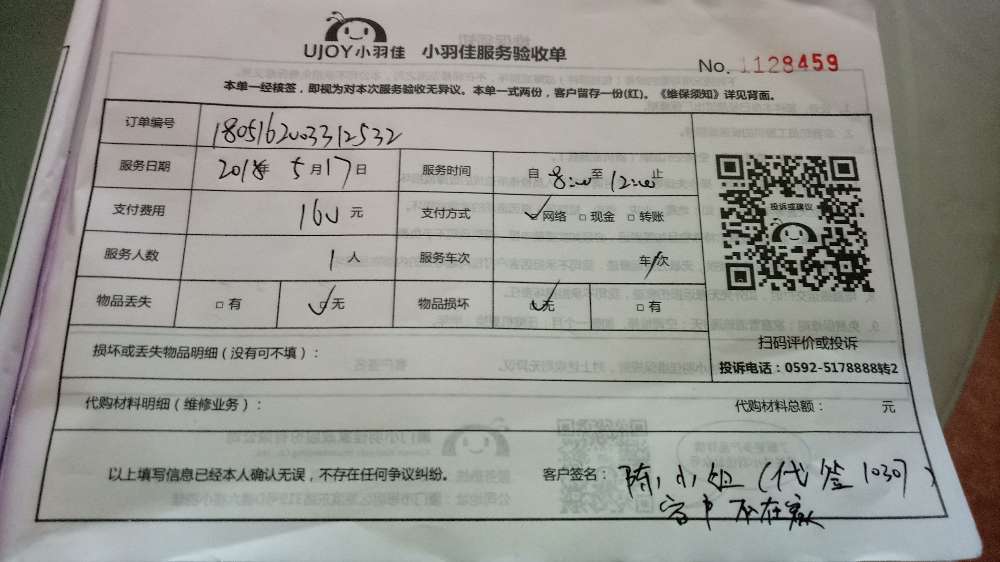 UJOY小羽佳 小羽佳服务验收单
No. 1128459
本单一经核签，即视为对本次服务验收无异议。本单一式两份，客户留存一份(红)。《维保须知》详见背面。
订单编号 1805162003312532
服务日期 2018年 5月17日 服务时间 自 8:00 至 12:00 止
支付费用 160 元 支付方式 ✓网络 □现金 □转账
服务人数 1 人 服务车次 / 车次
物品丢失 □有 ✓无 物品损坏 ✓无 □有
投诉或建议
扫码评价或投诉
投诉电话：0592-5178888转2
损坏或丢失物品明细（没有可不填）：
代购材料明细（维修业务）： 代购材料总额： 元
以上填写信息已经本人确认无误，不存在任何争议纠纷。 客户签名： 陈小姐（代签1030）
客户不在家